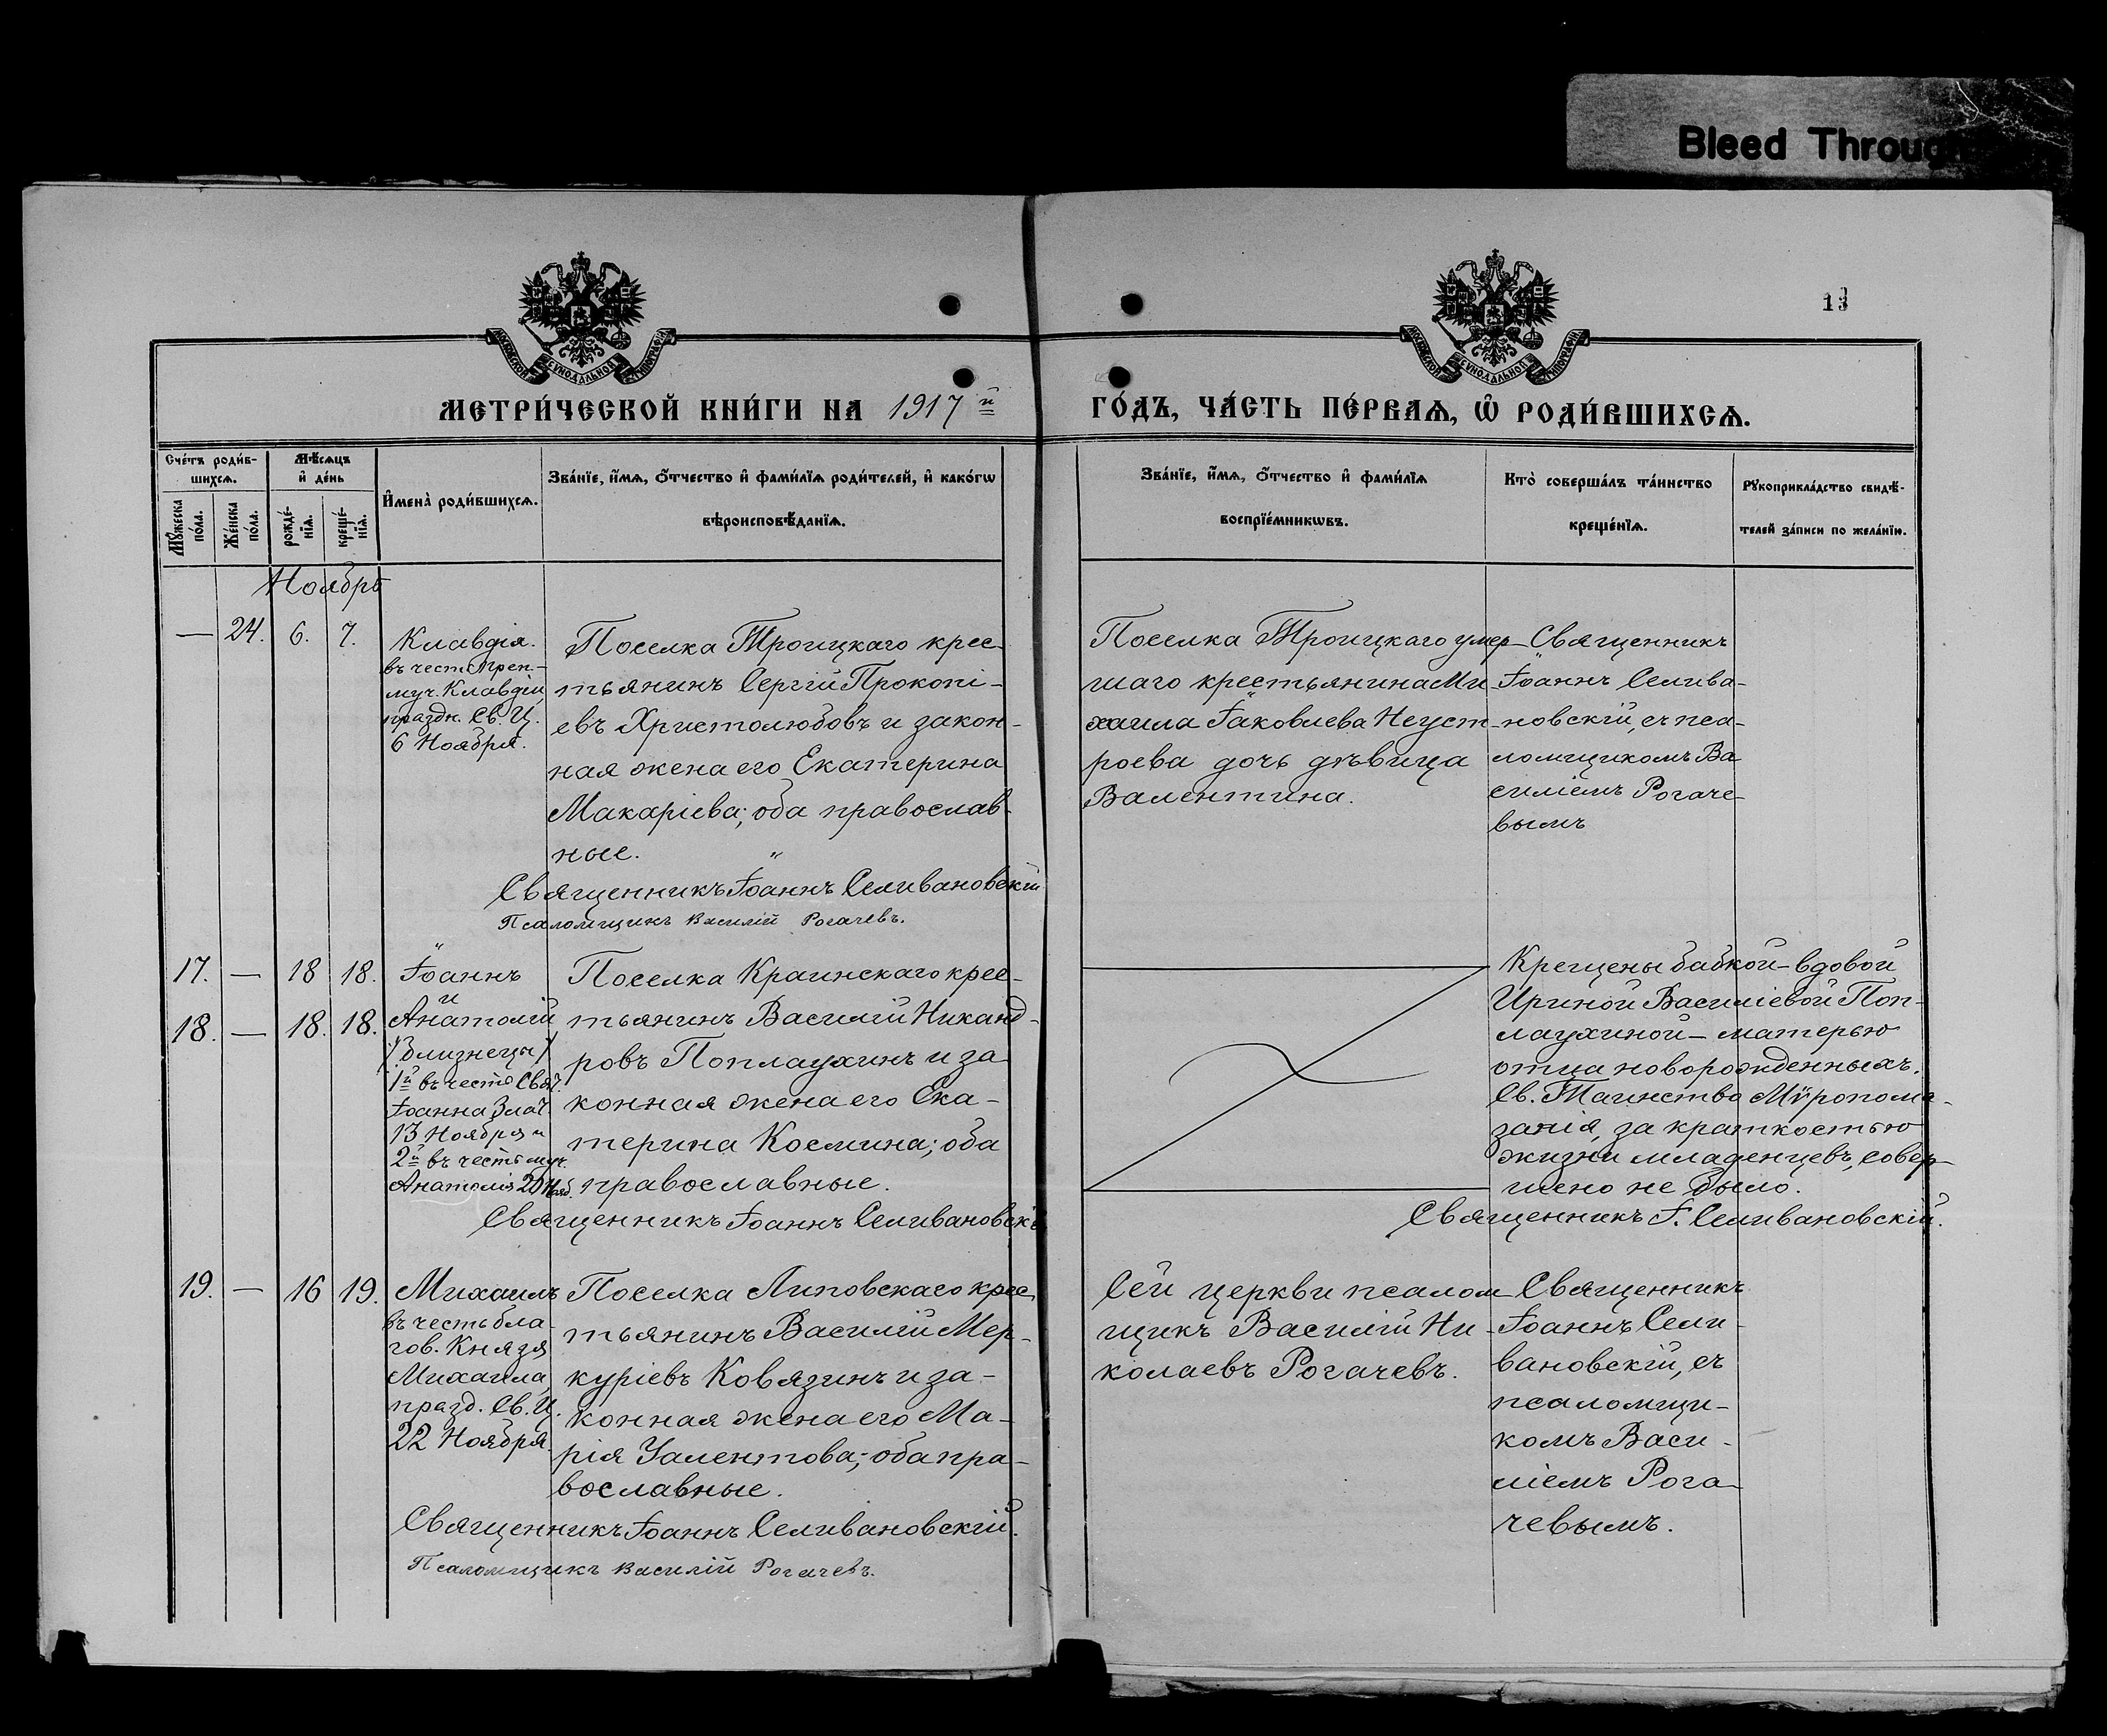 Bleed Throug
13
МОСКОВСКОЙ СѴНОДАЛЬНОЙ ТИПОГРАФІИ
МОСКОВСКОЙ СѴНОДАЛЬНОЙ ТИПОГРАФІИ
МЕТРИ́ЧЕСКОЙ КНИ́ГИ НА 1917й
ГО́ДЪ, ЧА́СТЬ ПЕ́РВАѦ, Ѽ РОДИ́ВШИХСѦ.
Сче́тъ роди́в-
шихсѧ.
Мꙋ́жеска по́ла.
Же́нска по́ла.
Мѣ́сѧцъ
и҆ де́нь
рожде́-
нїѧ.
креще́-
нїѧ.
И҆мена̀ роди́вшихсѧ.
Зва́нїе, и҆́мѧ, ѻ҆́тчество и҆ фами́лїѧ роди́телей, и҆ како́гѡ
вѣроисповѣ́данїѧ.
Зва́нїе, и҆́мѧ, ѻ҆́тчество и҆ фами́лїѧ
воспрїе́мникѡвъ.
Кто̀ соверша́лъ та́инство
креще́нїѧ.
Рꙋкоприкла́дство свидѣ́-
телей за́писи по жела́нїю.
Ноябрь
— 24. 6. 7.
Клавдія.
въ честь преп.-
муч. Клавдіи
праздн. Св. Ц.
6 Ноября.
Поселка Троицкаго крес-
тьянинъ Сергій Прокопі-
евъ Христолюбовъ и закон-
ная жена его Екатерина
Макаріева; оба православ-
ные.
Священникъ Іоаннъ Селивановскій
Псаломщикъ Василій Рогачевъ.
Поселка Троицкаго умер-
шаго крестьянина Ми-
хаила Іаковлева Неуст-
роева дочь дѣвица
Валентина.
Священникъ
Іоаннъ Селива-
новскій, съ пса-
ломщикомъ Ва
силіемъ Рогаче-
вымъ
17. — 18 18.
18. — 18. 18.
Іоаннъ
и
Анатолій
/близнецы/
1й въ честь Свят.
Іоанна Злат.
13 Ноября и
2й въ честь муч.
Анатолія 20 Нояб.
Поселка Краинскаго крес-
тьянинъ Василій Никанд-
ровъ Поплаухинъ и за
конная жена его Ека-
терина Космина; оба
православные.
Священникъ Іоаннъ Селивановскій
Крещены бабкой-вдовой
Ириной Василіевой Поп-
лаухиной — матерью
отца новорожденныхъ.
Св. Таинство Мѵропома-
занія, за краткостью
жизни младенцевъ, совер-
шено не было.
Священникъ І. Селивановскій.
19. — 16 19.
Михаилъ
въ честь бла-
гов. Князя
Михаила,
празд. Св. Ц.
22 Ноября.
Поселка Липовскаго крес-
тьянинъ Василій Мер-
куріевъ Ковязинъ и за-
конная жена его Ма-
рія Уалентова; оба пра-
вославные.
Священникъ Іоаннъ Селивановскій.
Псаломщикъ Василій Рогачевъ.
Сей церкви псалом-
щикъ Василій Ни-
колаевъ Рогачевъ.
Священникъ
Іоаннъ Сели-
вановскій, съ
псаломщи-
комъ Васи-
ліемъ Рога-
чевымъ.